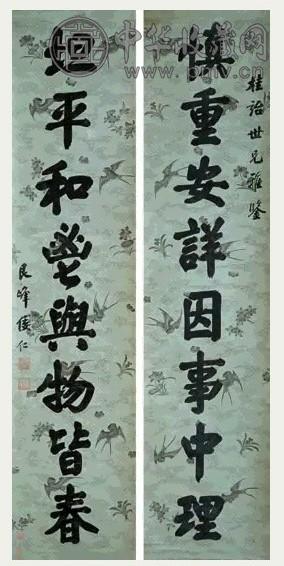 中华收藏网
桂詒世兄雅鑒
慎重安詳因事中理
平和與物皆春
艮峰倭仁